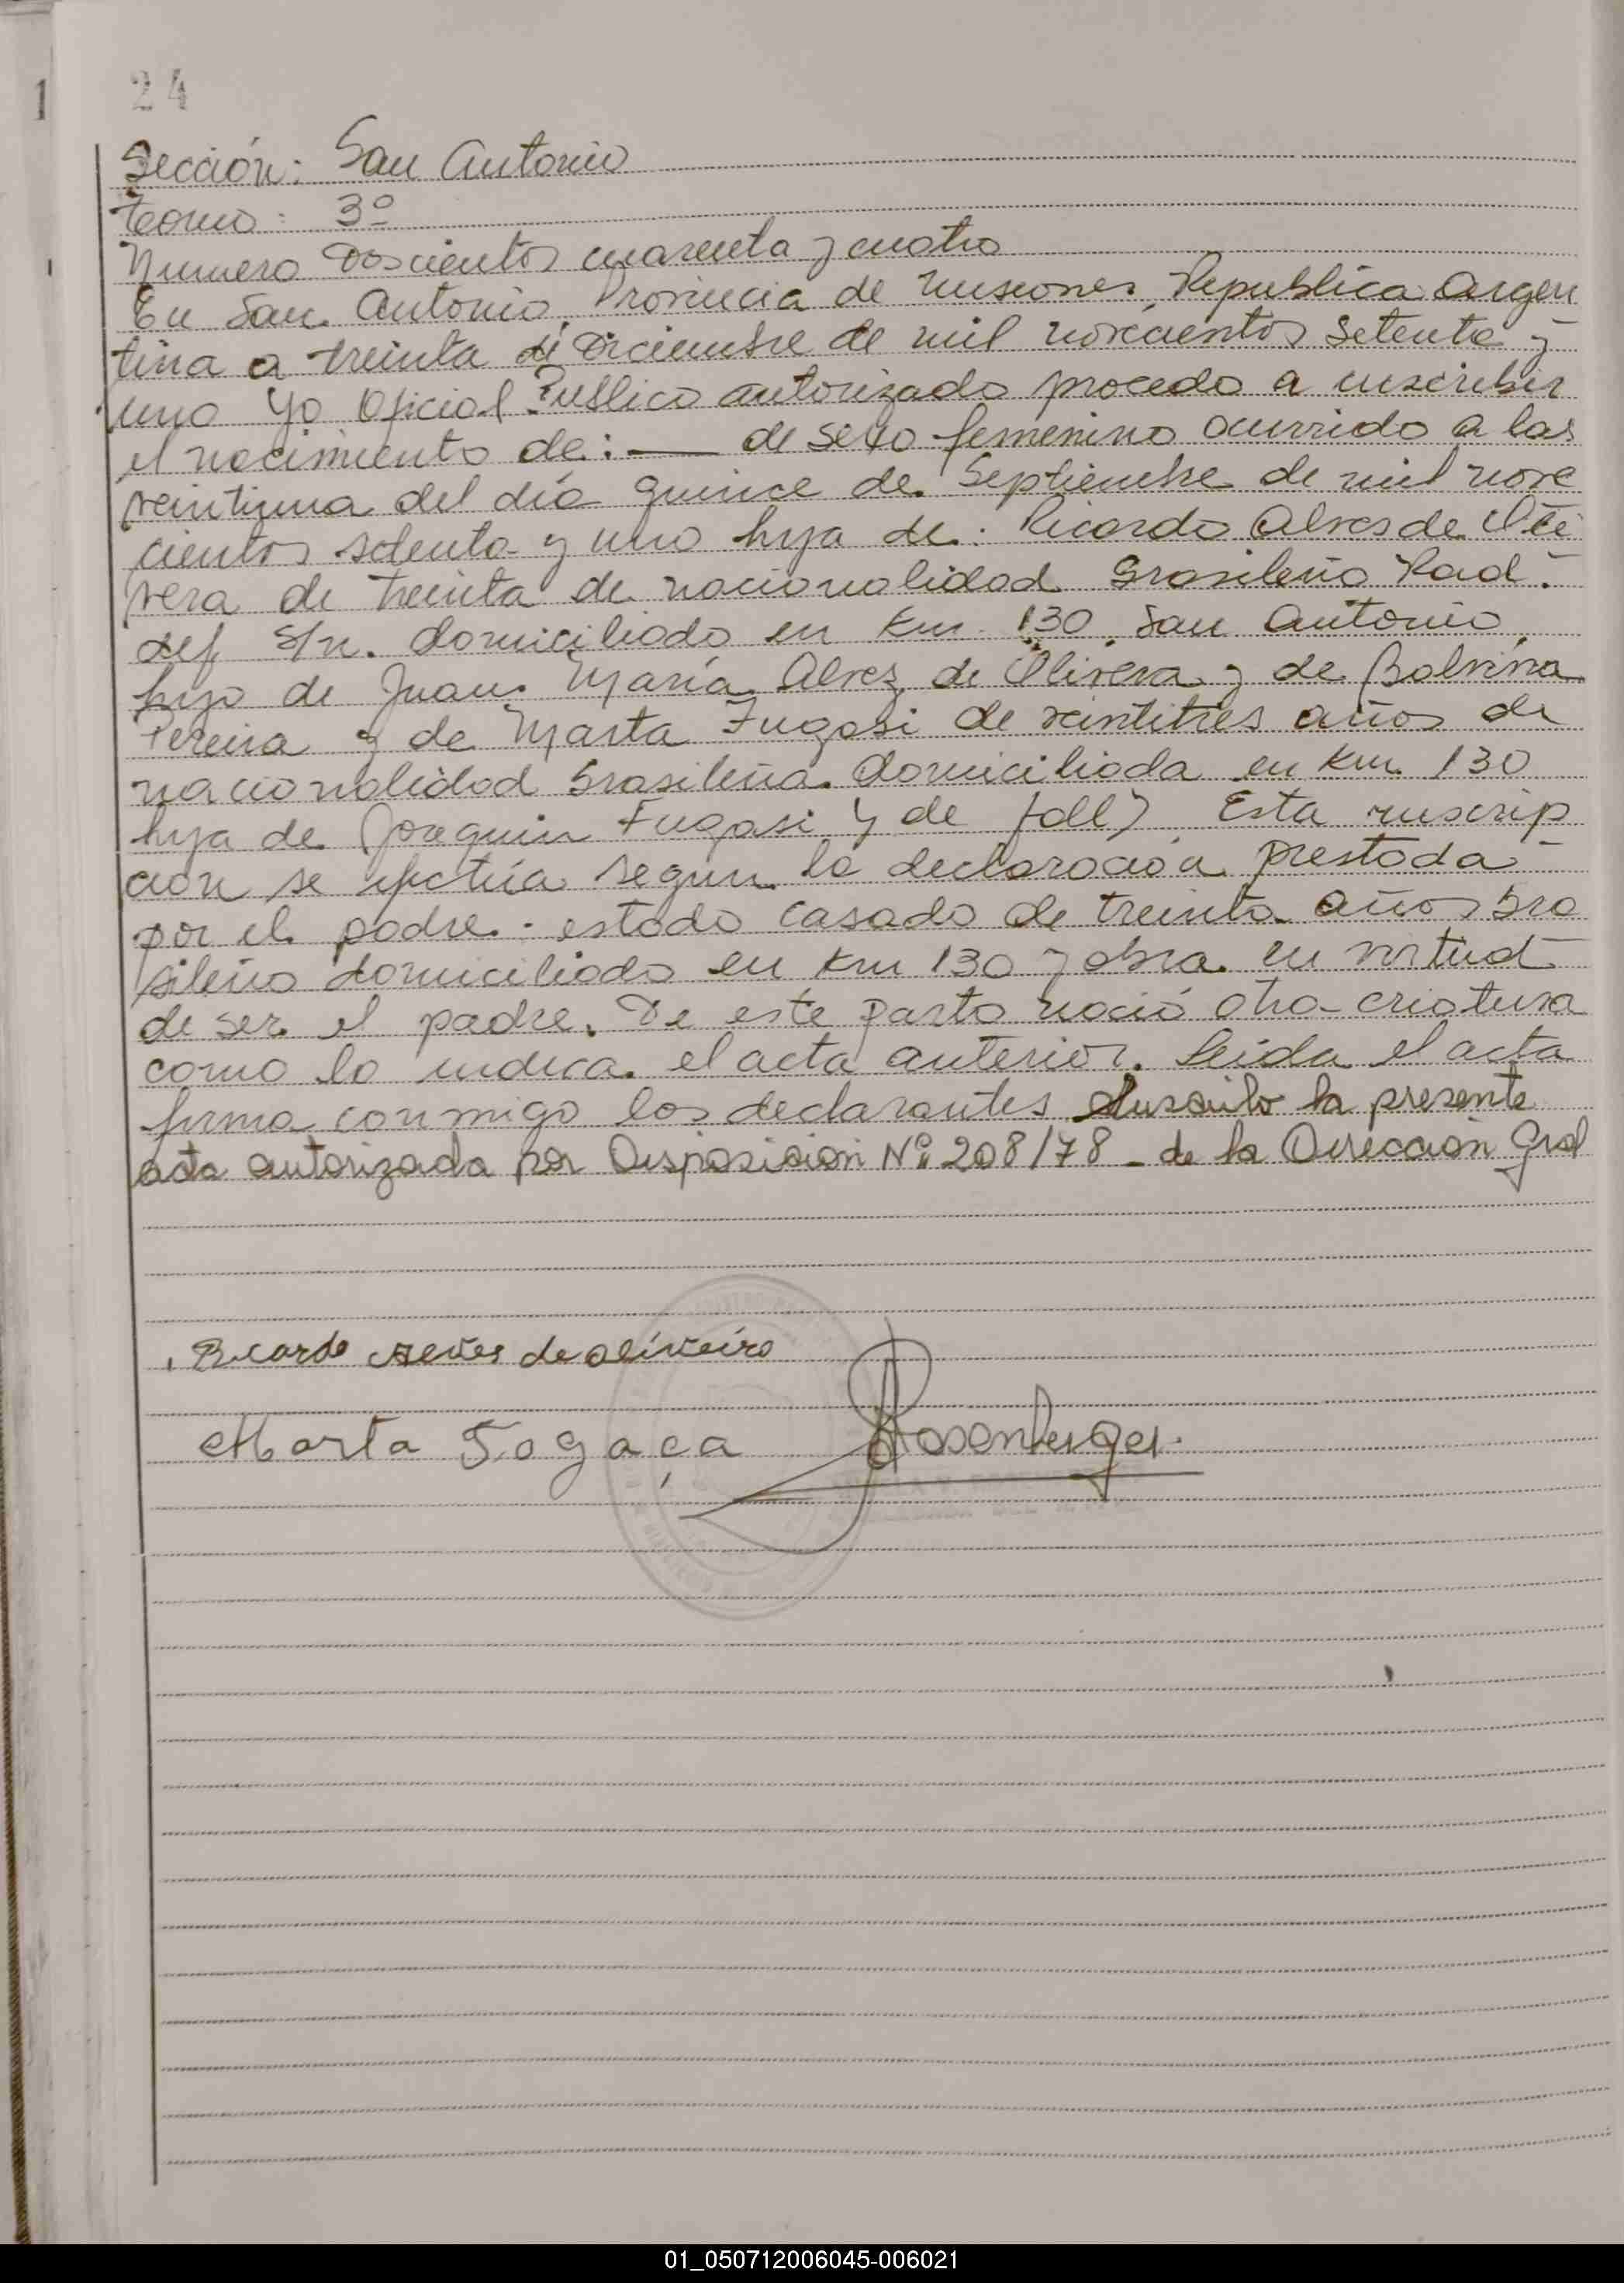 24
1
Sección: San Antonio
Tomo: 3º
Numero Doscientos cuarenta y cuatro
En San Antonio, Provincia de Misiones, Republica Argen
tina a treinta de Diciembre de mil novecientos setenta y
uno Yo Oficial Publico autorizado procedo a inscribir
el nacimiento de: — de sexo femenino ocurrido a las
veintiuna del día quince de Septiembre de mil nove
cientos setenta y uno hija de: Ricardo Alves de Oli
vera de treinta de nacionalidad Brasileño Rad.
def S/n. domiciliado en Km. 130. San Antonio,
hijo de Juan María Alvez de Olivera y de Balvina
Pereira y de Marta Fugasi de veintitres años de
nacionalidad brasileña. domiciliada en Km 130
hija de (Joaquin Fugasi y de fall) Esta inscrip
ción se efectúa segun la declaración prestada
por el padre. estado casado de treinta años bra
sileño domiciliado en Km 130 y obra en virtud
de ser el padre. De este parto nació otra criatura
como lo indica el acta anterior. Leida el acta
firma conmigo los declarantes la presente
acta autorizada por Disposicion Nº 208/78 - de la Dirección Gral
Ricardo Alves de oliveira
Marta Fogaça Rosenberger.
01_050712006045-006021